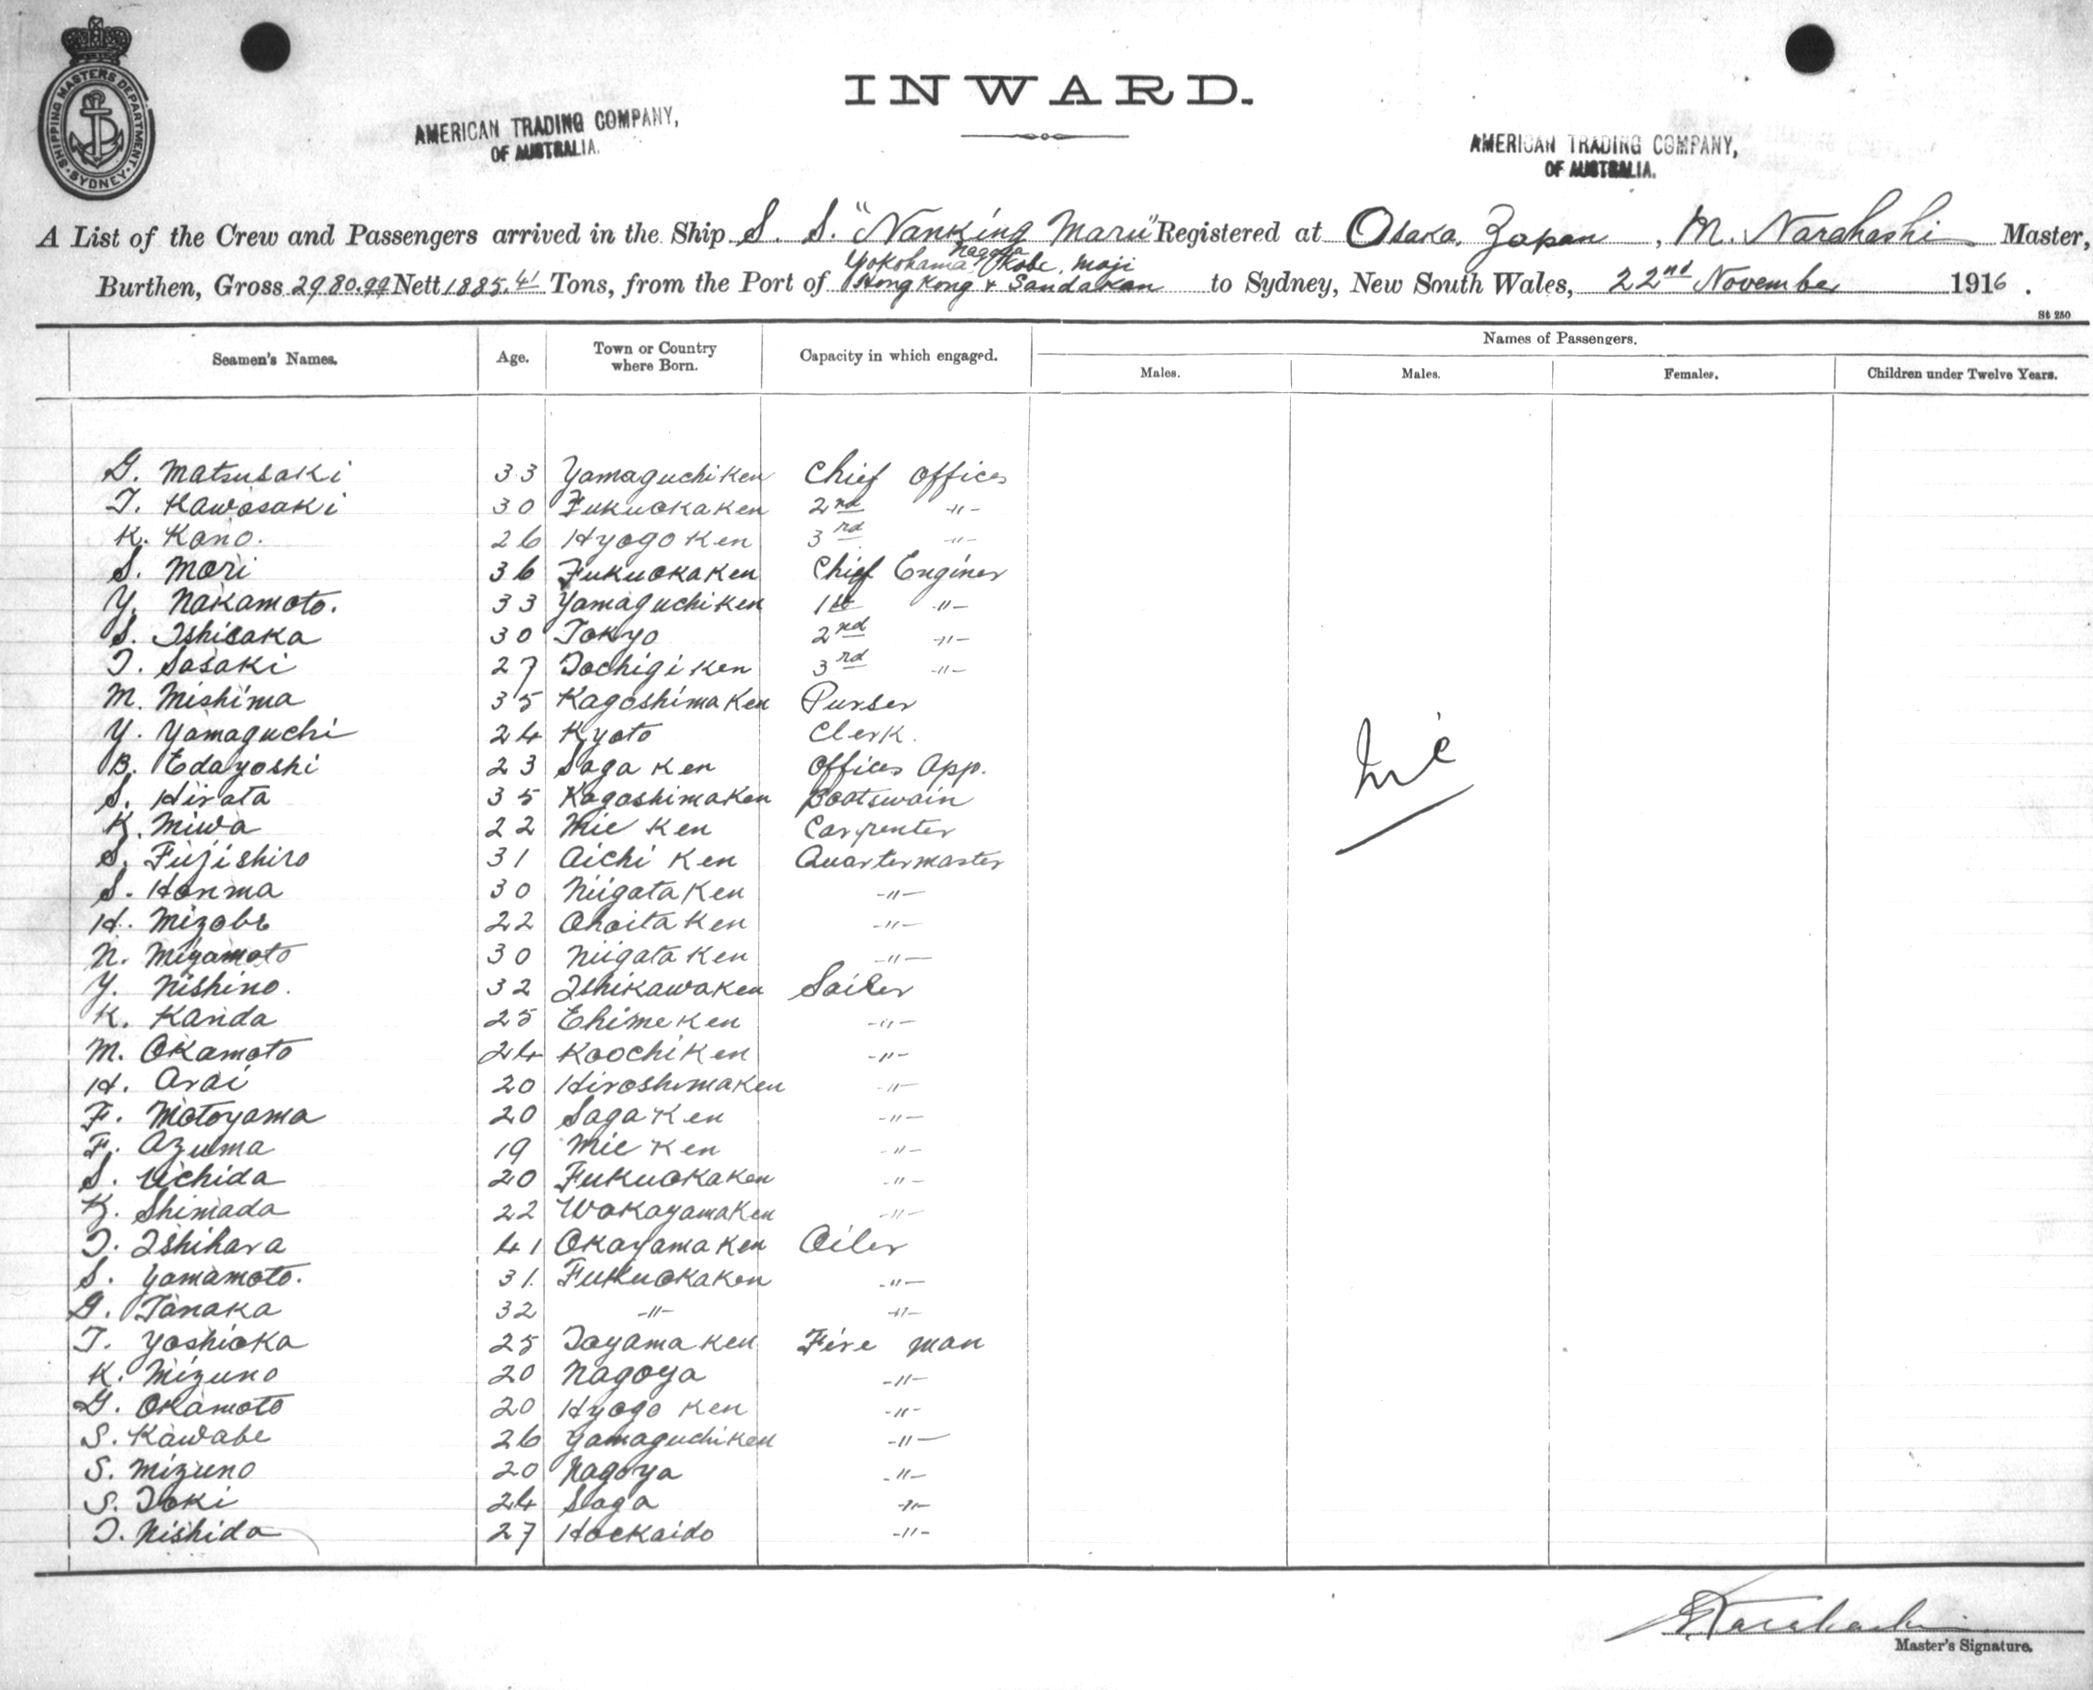 SHIPPING MASTERS DEPARTMENT
SYDNEY
INWARD.
AMERICAN TRADING COMPANY,
OF AUSTRALIA.
AMERICAN TRADING COMPANY,
OF AUSTRALIA.
A List of the Crew and Passengers arrived in the Ship S. S. "Nanking Maru" Registered at Osaka, Japan, M. Narahashi Master,
Nagoya
Yokohama Kobe, Moji
Burthen, Gross 2980.99 Nett 1885.41 Tons, from the Port of Hong Kong & Sandakan to Sydney, New South Wales, 22nd November 1916.
St 250
Seamen's Names. Age. Town or Country where Born. Capacity in which engaged. Names of Passengers.
Males. Males. Females. Children under Twelve Years.
G. Matsusaki 33 Yamaguchi Ken Chief Officer
T. Kawasaki 30 Fukuoka Ken 2nd -"-
K. Kano. 26 Hyogo Ken 3rd -"-
S. Mori 36 Fukuoka Ken Chief Enginer
Y. Nakamoto. 33 Yamaguchi Ken 1st -"-
S. Ishisaka 30 Tokyo 2nd -"-
T. Sasaki 27 Tochigi Ken 3rd -"-
M. Mishima 35 Kagoshima Ken Purser
Y. Yamaguchi 24 Kyoto Clerk.
B. Edayoshi 23 Saga Ken Officer App.
S. Hirata 35 Kagoshima Ken Boatswain
K. Miwa 22 Mie Ken Carpenter
S. Fujishiro 31 Aichi Ken Quartermaster
S. Honma 30 Niigata Ken -"-
H. Mizobe 22 Ohoita Ken -"-
N. Miyamoto 30 Niigata Ken -"-
Y. Nishino. 32 Ishikawa Ken Sailer
K. Kanda 25 Ehime Ken -"-
M. Okamoto 24 Koochi Ken -"-
H. Arai 20 Hiroshima Ken -"-
F. Motoyama 20 Saga Ken -"-
F. Azuma 19 Mie Ken -"-
S. Uchida 20 Fukuoka Ken -"-
K. Shimada 22 Wakayama Ken -"-
T. Ishihara 41 Okayama Ken Oiler
S. Yamamoto. 31. Fukuoka Ken -"-
G. Tanaka 32 -"- -"-
T. Yoshioka 25 Toyama Ken Fire man
K. Mizuno 20 Nagoya -"-
G. Okamoto 20 Hyogo Ken -"-
S. Kawabe 26 Yamaguchi Ken -"-
S. Mizuno 20 Nagoya -"-
S. Toki 24 Saga -"-
T. Nishida 27 Hockaido -"-
Narahashi
Master's Signature.